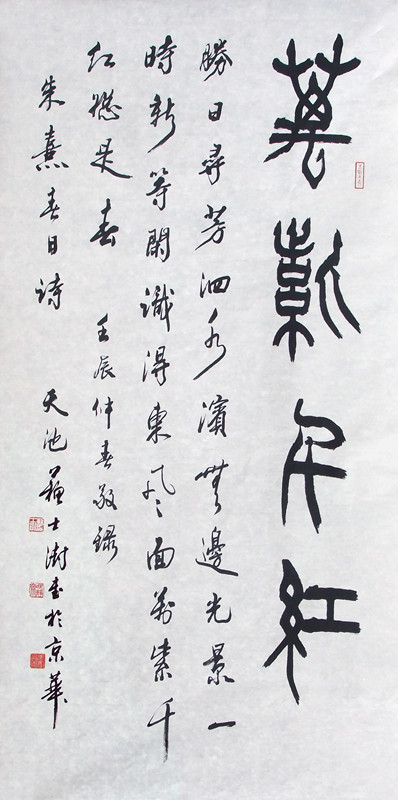 萬紫千紅
勝日尋芳泗水濱無邊光景一
時新等閑識得東風面萬紫千
紅總是春 壬辰仲春敬錄
朱熹春日詩 天池蘇士澍書於京華